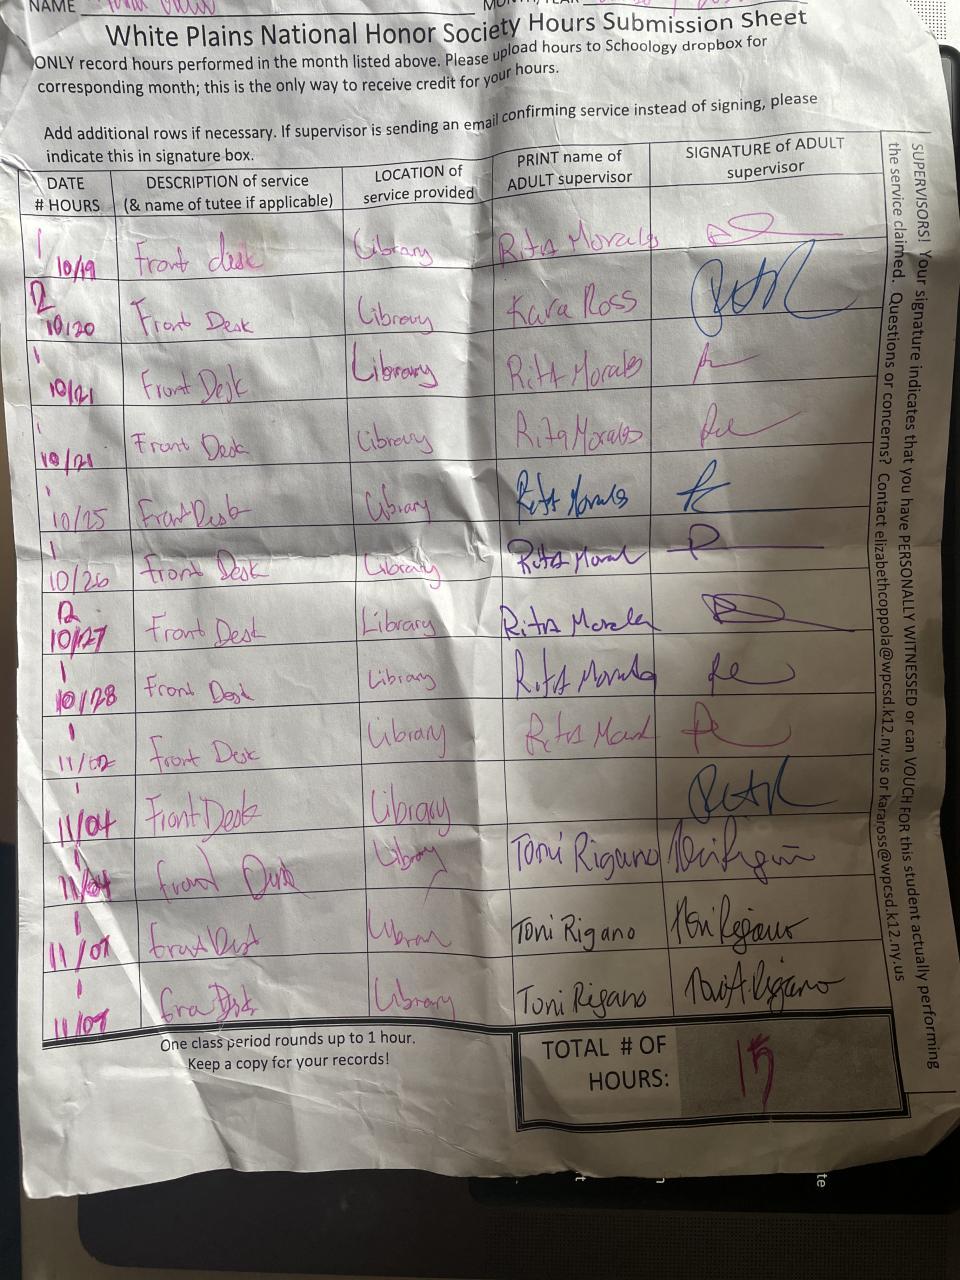 NAME
MONTH/YEAR
White Plains National Honor Society Hours Submission Sheet
ONLY record hours performed in the month listed above. Please upload hours to Schoology dropbox for
corresponding month; this is the only way to receive credit for your hours.
Add additional rows if necessary. If supervisor is sending an email confirming service instead of signing, please
indicate this in signature box.
DATE
# HOURS
DESCRIPTION of service
(& name of tutee if applicable)
LOCATION of
service provided
PRINT name of
ADULT supervisor
SIGNATURE of ADULT
supervisor
1
10/19 Front desk Library Rita Morales
2
10/20 Front Desk Library Kara Ross
1
10/21 Front Desk Library RitA Morales
1
10/21 Front Desk Library Rita Morales
1
10/25 Front Desk Library RitA Morales
1
10/26 front Desk Library RitA
2
10/27 Front Desk Library RitA Morales
1
10/28 Front Desk Library RitA Morales
1
11/02 Front Desk Library RitA
1
11/04 Front Desk Library
1
11/04 front Desk Library Toni Rigano Toni Rigano
1
11/07 front Desk Toni Rigano Toni Rigano
1
11/07 Library Toni Rigano Toni A. Rigano
One class period rounds up to 1 hour.
Keep a copy for your records!
TOTAL # OF
HOURS:
15
SUPERVISORS! Your signature indicates that you have PERSONALLY WITNESSED or can VOUCH FOR this student actually performing
the service claimed. Questions or concerns? Contact elizabethcoppola@wpcsd.k12.ny.us or karaross@wpcsd.k12.ny.us